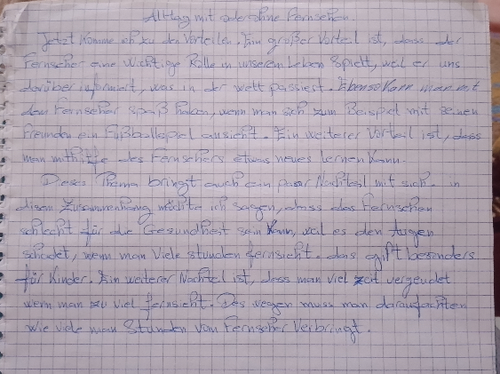 Alltag mit oder ohne Fernsehen.
Jetzt komme ich zu den Vorteilen. Ein großer Vorteil ist, dass der
Fernseher eine wichtige Rolle in unserem Leben spielt, weil er uns
darüber informiert, was in der welt passiest. Ebenso kann man mit
dem Fernseher spaß haben, wenn man sich zum Beispiel mit seinen
Freunden ein Fußballspiel ansieht. Ein weiterer Vorteil ist, dass
man mithilfe des Fernsehers etwas neues lernen kann.
Dieses Thema bringt auch ein paar Nachteil mit sich. in
disem Zusammenhang möchte ich sagen, dass das Fernsehen
schlecht für die Gesundheit sein kann, weil es den Augen
schadet, wenn man viele stunden fernsieht. das gilt besonders
für Kinder. Ein weiterer Nachteil ist, dass man viel zeit vergeudet
wenn man zu viel fernsieht. Des wegen muss man daraufachten
wie viele man Stunden vom Fernseher verbringt.